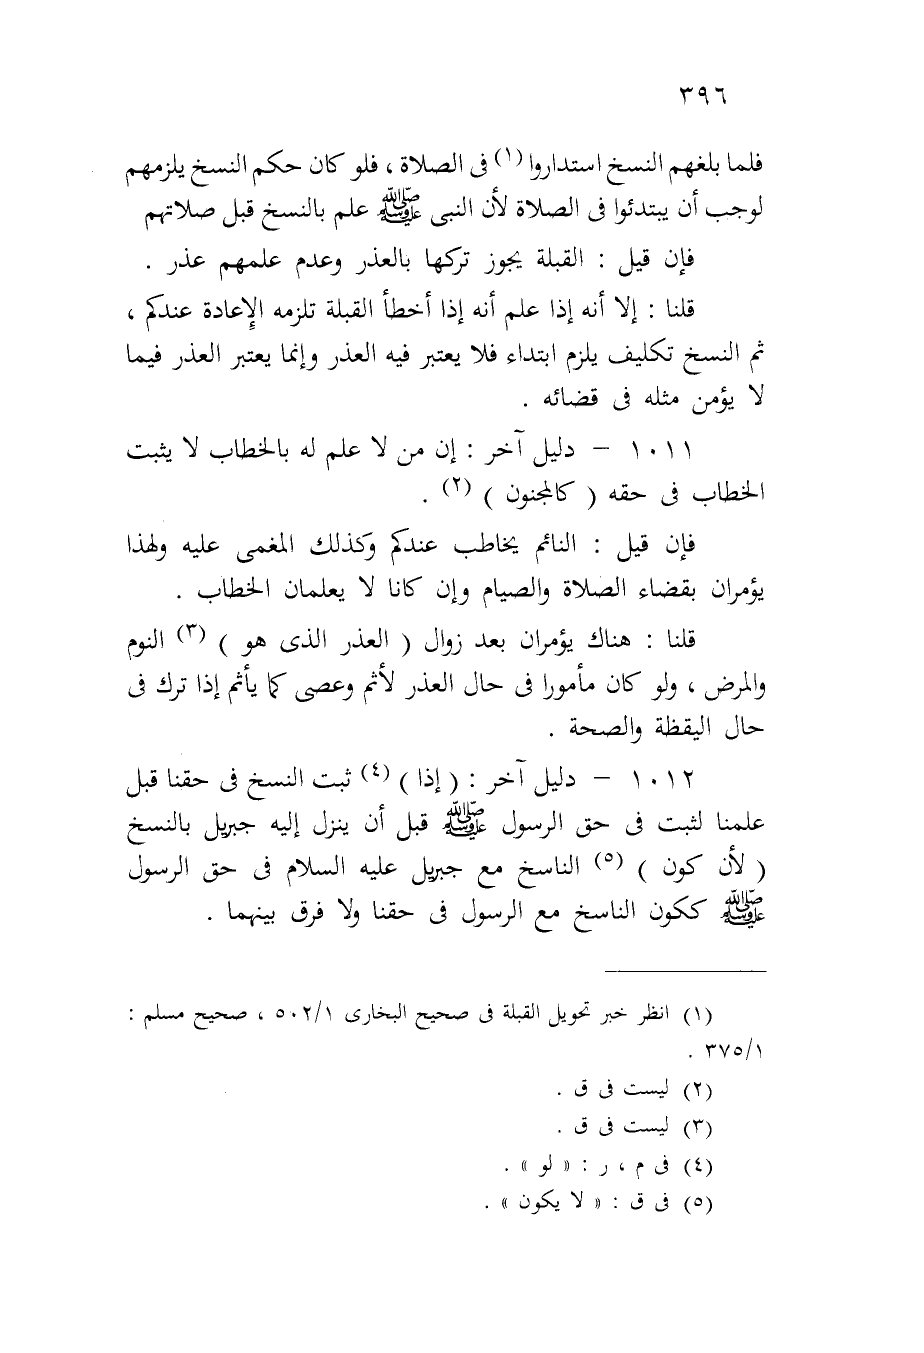 ٣٩٦
فلما بلغهم النسخ استداروا (١) فى الصلاة ، فلو كان حكم النسخ يلزمهم
لوجب أن يبتدئوا فى الصلاة لأن النبى ﷺ علم بالنسخ قبل صلاتهم
فإن قيل : القبلة يجوز تركها بالعذر وعدم علمهم عذر .
قلنا : إلا أنه إذا علم أنه إذا أخطأ القبلة تلزمه الإعادة عندكم ،
ثم النسخ تكليف يلزم ابتداء فلا يعتبر فيه العذر وإنما يعتبر العذر فيما
لا يؤمن مثله فى قضائه .
١٠١١ – دليل آخر : إن من لا علم له بالخطاب لا يثبت
الخطاب فى حقه ( كالمجنون ) (٢) .
فإن قيل : النائم يخاطب عندكم وكذلك المغمى عليه ولهذا
يؤمران بقضاء الصلاة والصيام وإن كانا لا يعلمان الخطاب .
قلنا : هناك يؤمران بعد زوال ( العذر الذى هو ) (٣) النوم
والمرض ، ولو كان مأمورا فى حال العذر لأثم وعصى كما يأثم إذا ترك فى
حال اليقظة والصحة .
١٠١٢ – دليل آخر : ( إذا ) (٤) ثبت النسخ فى حقنا قبل
علمنا لثبت فى حق الرسول ﷺ قبل أن ينزل إليه جبريل بالنسخ
( لأن كون ) (٥) الناسخ مع جبريل عليه السلام فى حق الرسول
ﷺ ككون الناسخ مع الرسول فى حقنا ولا فرق بينهما .
(١) انظر خبر تحويل القبلة فى صحيح البخارى ٥٠٢/١ ، صحيح مسلم :
٣٧٥/١ .
(٢) ليست فى ق .
(٣) ليست فى ق .
(٤) فى م ، ر : « لو » .
(٥) فى ق : « لا يكون » .